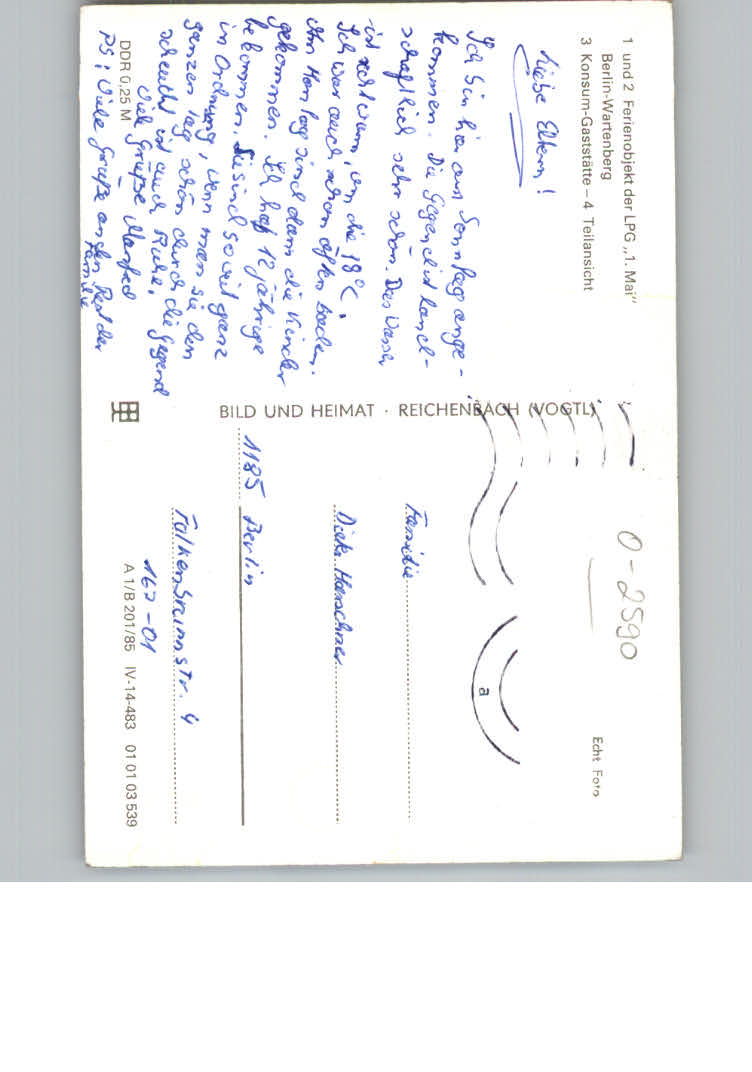 1 und 2 Ferienobjekt der LPG „1. Mai“
Berlin-Wartenberg
3 Konsum-Gaststätte – 4 Teilansicht
Liebe Eltern!
Ich bin hier am Sonntag ange-
kommen. Die Gegend ist land-
schaftlich sehr schön. Das Wasser
ist warm, um die 18°C,
Ich war auch schon öfter baden.
Am Montag sind dann die Kinder
gekommen. Ich hab 12 jährige
bekommen. Sie sind soweit ganz
in Ordnung, wenn man sie den
ganzen Tag schön durch die Gegend
scheucht ist auch Ruhe.
Viele Grüße Manfred
PS: Viele Grüße an den Rest der
Familie
DDR 0,25 M
BILD UND HEIMAT · REICHENBACH (VOGTL)
0-2590
Echt Foto
a
Familie
1185 Berlin
Falkenbrunnstr. 4
167-01
A 1/B 201/85 IV-14-483 01 01 03 539